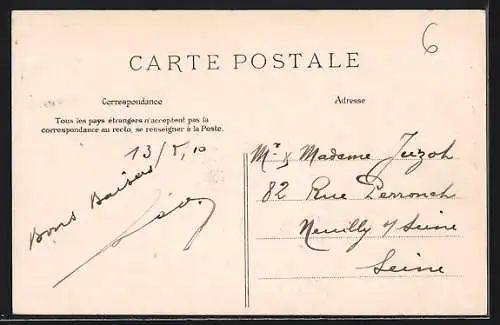 6
CARTE POSTALE
Correspondance
Adresse
Tous les pays étrangers n'acceptent pas la
correspondance au recto, se renseigner à la Poste.
13/5,10
Bons Baisers
Mr & Madame Juzoh
82 Rue Perronch
Neuilly s/ Seine
Seine